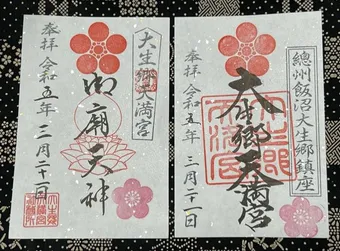 總州飯沼大生郷鎮座
大生郷天満宮
奉拝 令和五年 三月二十一日
大生郷天満宮
御廟天神
奉拝 令和五年 三月二十一日